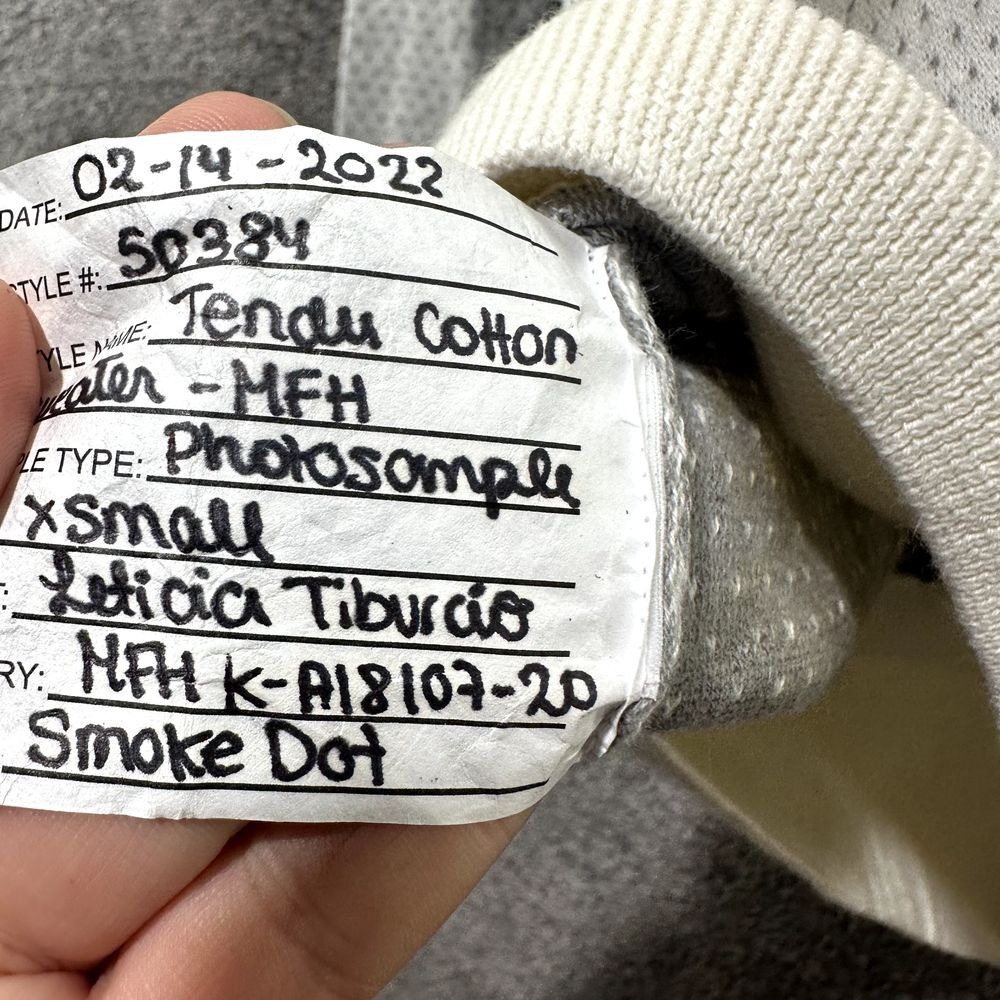 DATE: 02-14-2022
STYLE #: SD384
STYLE NAME: Tendu Cotton
Sweater - MFH
PLE TYPE: Photosample
xsmall
: Leticia Tiburcio
RY: MFH K-A18107-20
Smoke Dot